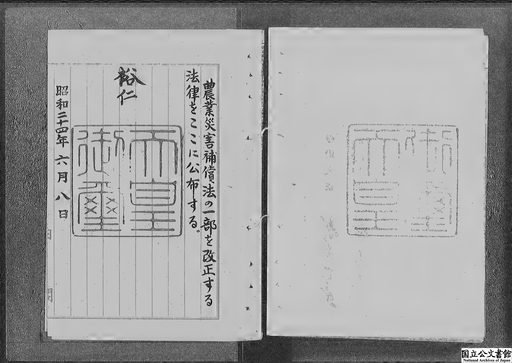 農業災害補償法の一部を改正する
法律をここに公布する。
裕仁
天皇
御璽
昭和二十四年六月八日
国立公文書館
National Archives of Japan